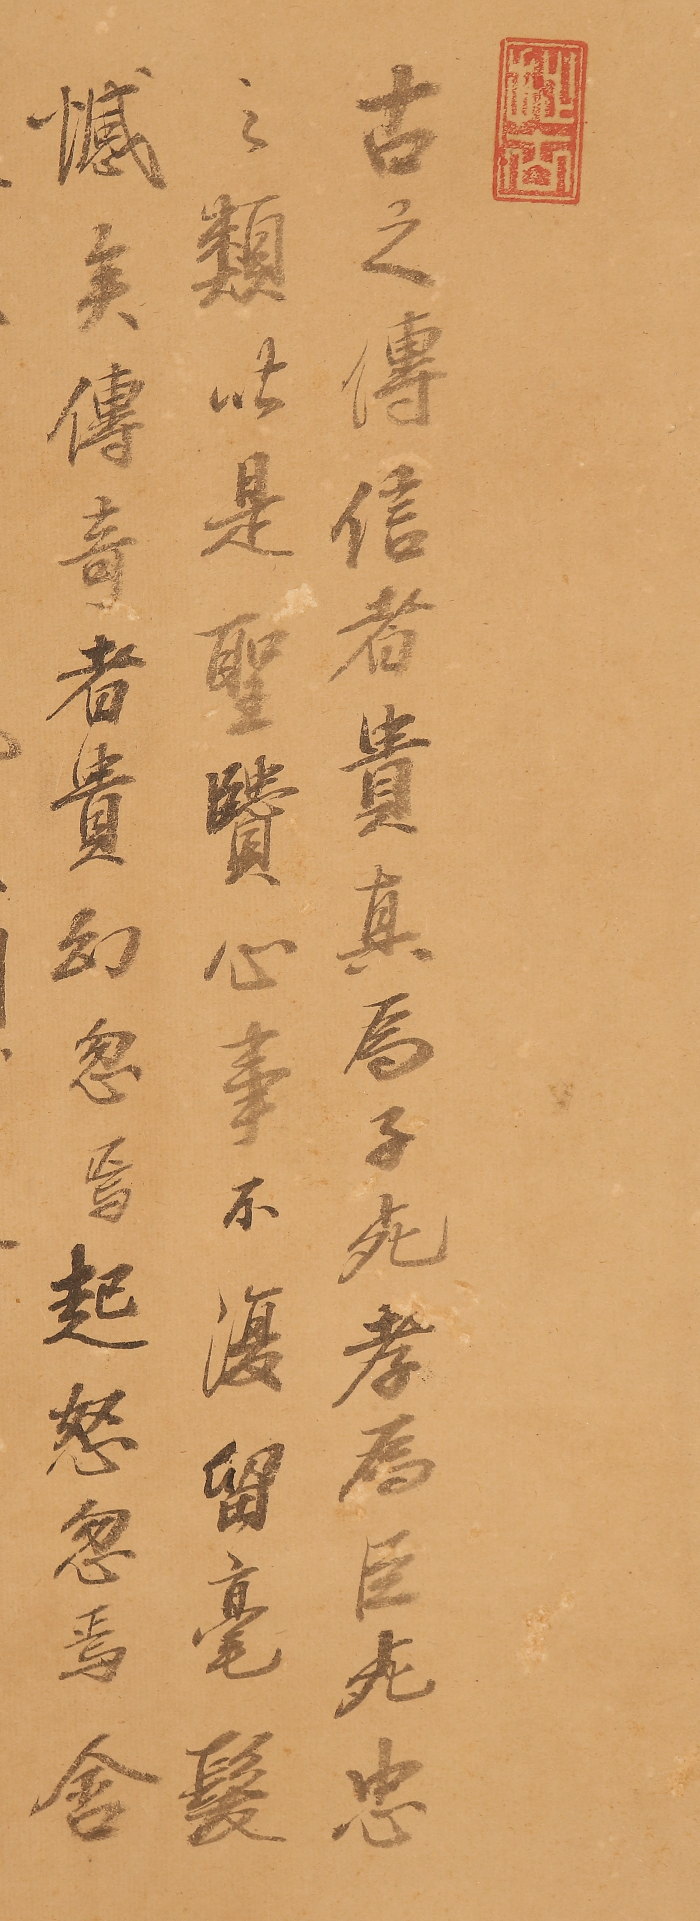 古之傳信者貴真為子死孝為臣死忠
之類此是聖賢心事不復留毫髮
憾矣傳奇者貴幻忽焉起怒忽焉舍